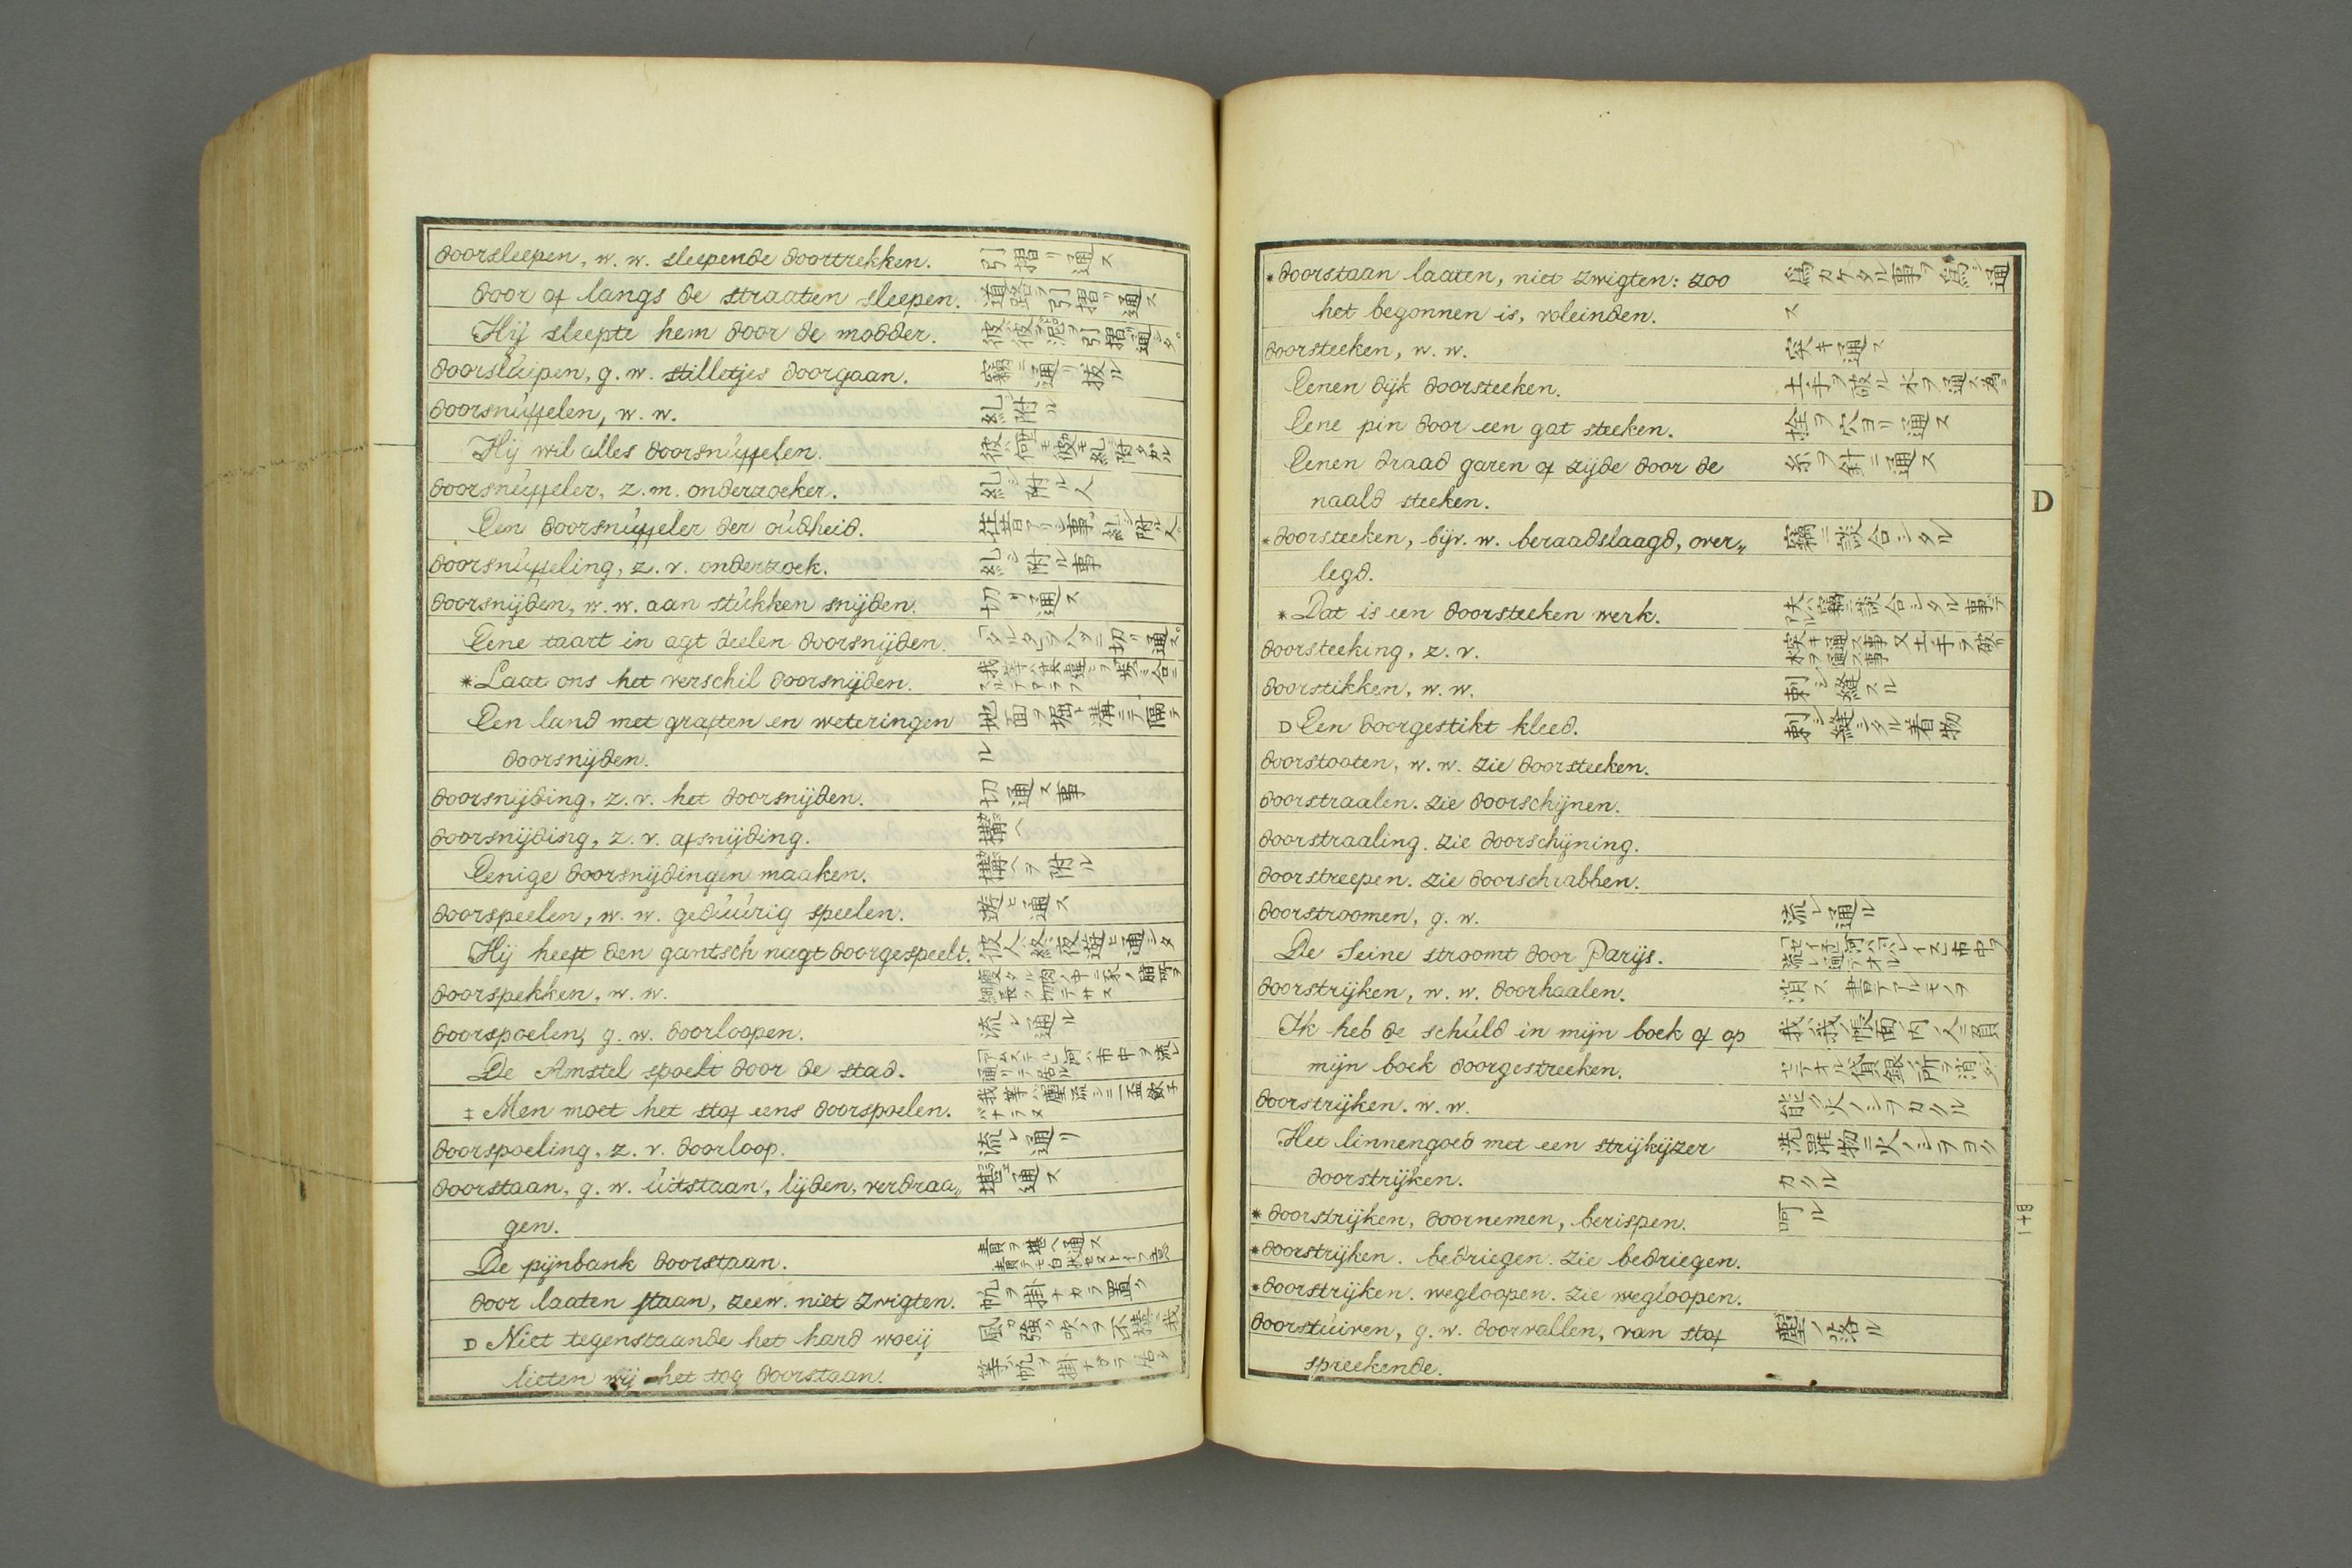 doorsleepen, w. w. sleepende doortrekken. 引摺リ通ス
door of langs de straaten sleepen. 道路ヲ引摺リ通ス
Hij sleepte hem door de modder.
doorslúipen, g. w. stilletjes doorgaan. 竊ニ通リ抜ル
doorsnúffelen, w. w. 糺シ附ル
Hij wil alles doorsnúffelen.
doorsnúffeler, z. m. onderzoeker. 糺シ附ル人
Een doorsnúffeler der oúdheid.
doorsnúffeling, z. v. onderzoek. 糺シ附ル事
doorsnijden, w. w. aan stúkken snijden. 切リ通ス
Eene taart in agt deelen doorsnijden.
*Laat ons het verschil doorsnijden.
Een land met graften en weteringen 地面ヲ掘ト溝ニテ隔テ
doorsnijden. ル
doorsnijding, z. v. het doorsnijden. 切通ス事
doorsnijding, z. v. afsnijding. 構ヘ
Eenige doorsnijdingen maaken. 構ヘヲ附ル
doorspeelen, w. w. gedúúrig speelen. 遊ヒ通ス
Hij heeft den gantsch nagt doorgespeelt. 彼人終夜遊ヒ通シタ
doorspekken, w. w.
doorspoelen, g. w. doorloopen. 流レ通ル
De Amstel spoelt door de stad.
‡ Men moet het stof eens doorspoelen.
doorspoeling, z. v. doorloop. 流レ通リ
doorstaan, g. w. úitstaan, lijden, verdraa„ 堪エ通ス
gen.
De pijnbank doorstaan. 責ヲ堪ヘ通ス
door laaten staan, zeew. niet zwigten. 帆ヲ掛ナカラ置ク
D Niet tegenstaande het hard woeij 風強ク吹クヲ不構我
lieten wij het tog doorstaan. 等帆ヲ掛ナカラ居タ
*doorstaan laaten, niet zwigten: zoo 為カケタル事ヲ為シ通
het begonnen is, voleinden. ス
doorsteeken, w. w. 突キ通ス
Eenen dijk doorsteeken. 土手ヲ破ル水ヲ通ス為ニ
Eene pin door een gat steeken. 拴ヲ穴ヨリ通ス
Eenen draad garen of zijde door de 糸ヲ針ニ通ス
naald steeken.
*doorsteeken, bijv. w. beraadslaagd, over„ 竊ニ談合シタル
legd.
*Dat is een doorsteeken werk. 夫ハ竊ニ談合シタル事テアル
doorsteeking, z. v. 突キ通ス事又土手ヲ破リ水ヲ通ス事
doorstikken, w. w. 刺シ縫スル
D Een doorgestikt kleed. 刺シ縫シタル着物
doorstooten, w. w. zie doorsteeken.
doorstraalen. zie doorschijnen.
doorstraaling. zie doorschijning.
doorstreepen. zie doorschrabben.
doorstroomen, g. w. 流レ通ル
De Seine stroomt door Parijs.
doorstrijken, w. w. doorhaalen. 消ス書テアルモノヲ
Ik heb de schúld in mijn boek of op 我ハ我帳面内ノ人ニ負
mijn boek doorgestreeken. セテオル貸銀ノ所ヲ消タ
doorstrijken. w. w. 能ク火ノシヲカクル
Het linnengoed met een strijkijzer 洗濯物ニ火ノシヲヨク
doorstrijken. カクル
*doorstrijken, doornemen, berispen. 呵ル
*doorstrijken. bedriegen. zie bedriegen.
*doorstrijken. wegloopen. zie wegloopen.
doorstúiven, g. w. doorvallen, van stof 塵ノ落ル
spreekende.
D